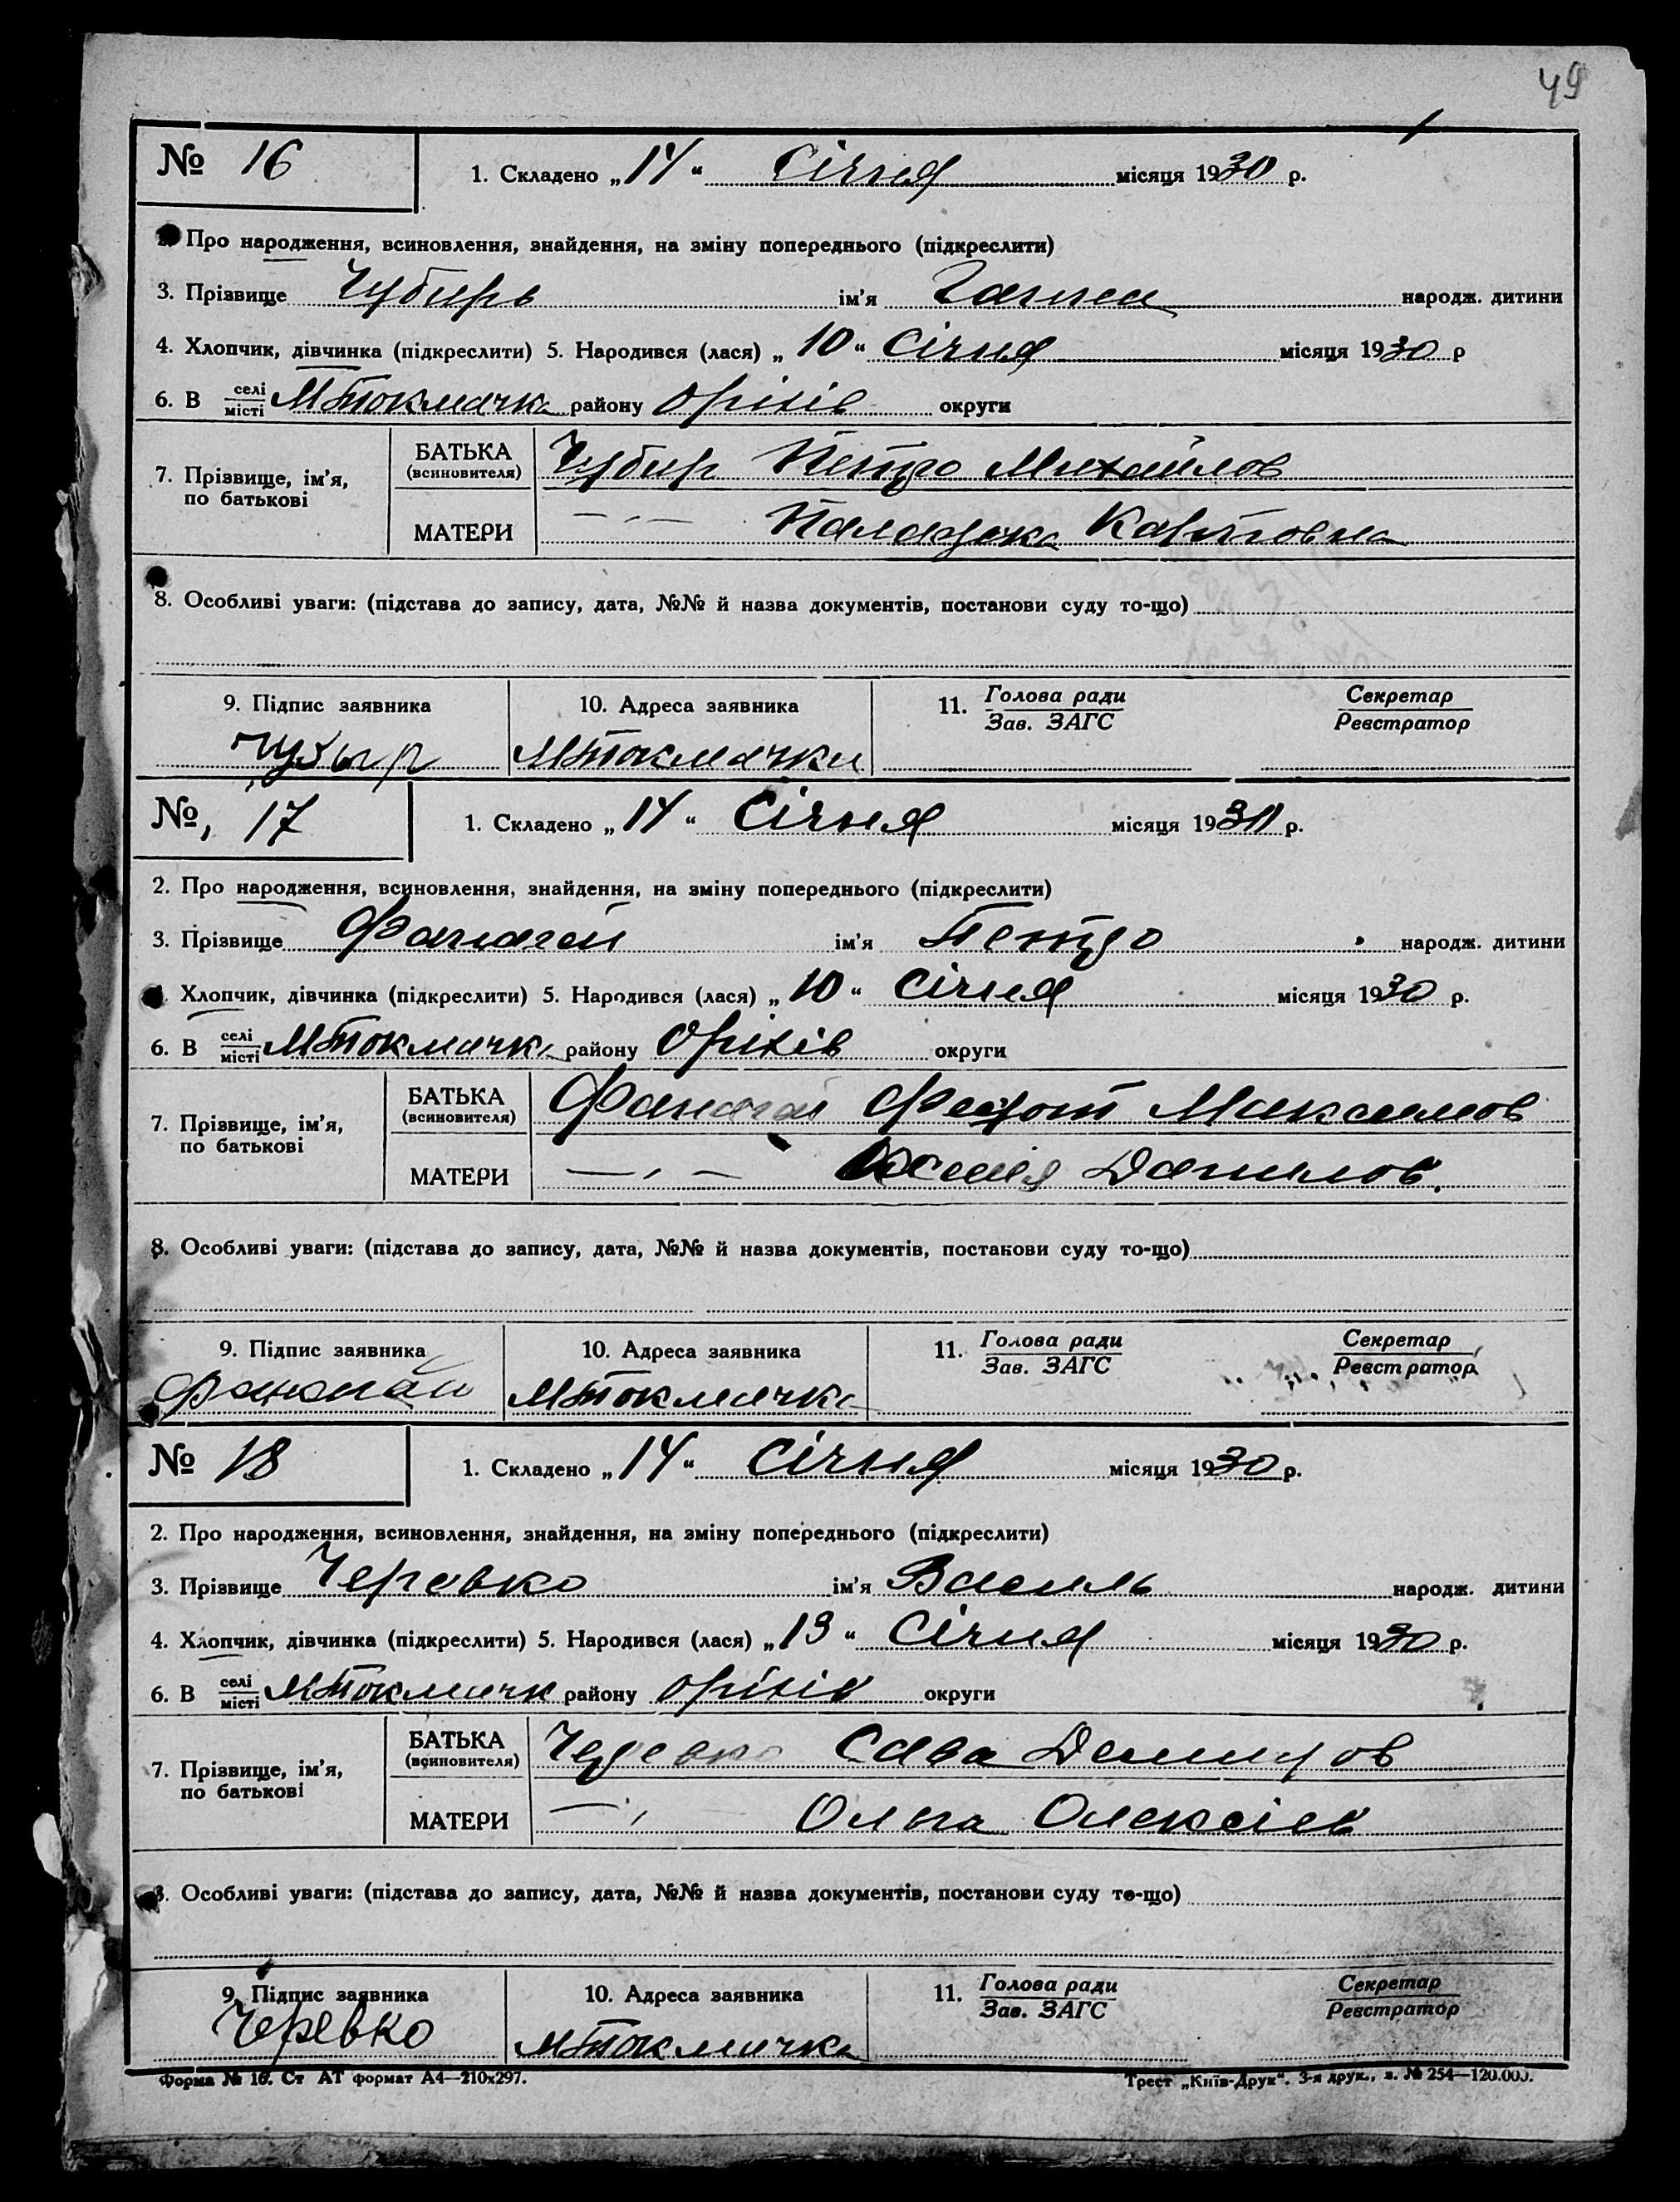 49
№ 16
1. Складено „14“ Січня місяця 1930 р.
2. Про народження, всиновлення, знайдення, на зміну попереднього (підкреслити)
3. Прізвище Чубирь ім'я Ганна народж. дитини
4. Хлопчик, дівчинка (підкреслити) 5. Народився (лася) „10“ Січня місяця 1930 р
6. В селі місті МТокмачка району Оріхів округи
7. Прізвище, ім'я, по батькові
БАТЬКА (всиновителя) Чубир Петро Михайлов
МАТЕРИ —„— Палажка Карповна
8. Особливі уваги: (підстава до запису, дата, №№ й назва документів, постанови суду то-що)
9. Підпис заявника 10. Адреса заявника 11. Голова ради Зав. ЗАГС Секретар Реєстратор
Чубыр МТокмачки
№ 17
1. Складено „14“ Січня місяця 1930 р.
2. Про народження, всиновлення, знайдення, на зміну попереднього (підкреслити)
3. Прізвище Фанагей ім'я Петро народж. дитини
4. Хлопчик, дівчинка (підкреслити) 5. Народився (лася) „10“ Січня місяця 1930 р.
6. В селі місті МТокмачка району Оріхів округи
7. Прізвище, ім'я, по батькові
БАТЬКА (всиновителя) Федот Максимов
МАТЕРИ —„— Ксенія Данилов.
8. Особливі уваги: (підстава до запису, дата, №№ й назва документів, постанови суду то-що)
9. Підпис заявника 10. Адреса заявника 11. Голова ради Зав. ЗАГС Секретар Реєстратор
МТокмачка
№ 18
1. Складено „14“ Січня місяця 1930 р.
2. Про народження, всиновлення, знайдення, на зміну попереднього (підкреслити)
3. Прізвище Черевко ім'я Василь народж. дитини
4. Хлопчик, дівчинка (підкреслити) 5. Народився (лася) „13“ Січня місяця 1930 р.
6. В селі місті МТокмачк району Оріхів округи
7. Прізвище, ім'я, по батькові
БАТЬКА (всиновителя) Черевко Сава Демидов
МАТЕРИ —„— Ольга Олексіев
8. Особливі уваги: (підстава до запису, дата, №№ й назва документів, постанови суду то-що)
9. Підпис заявника 10. Адреса заявника 11. Голова ради Зав. ЗАГС Секретар Реєстратор
Черевко МТокмачка
Форма № 16. Ст АТ формат А4—210х297. Трест „Київ-Друк“. 3-я друк., з. № 254—120.000.